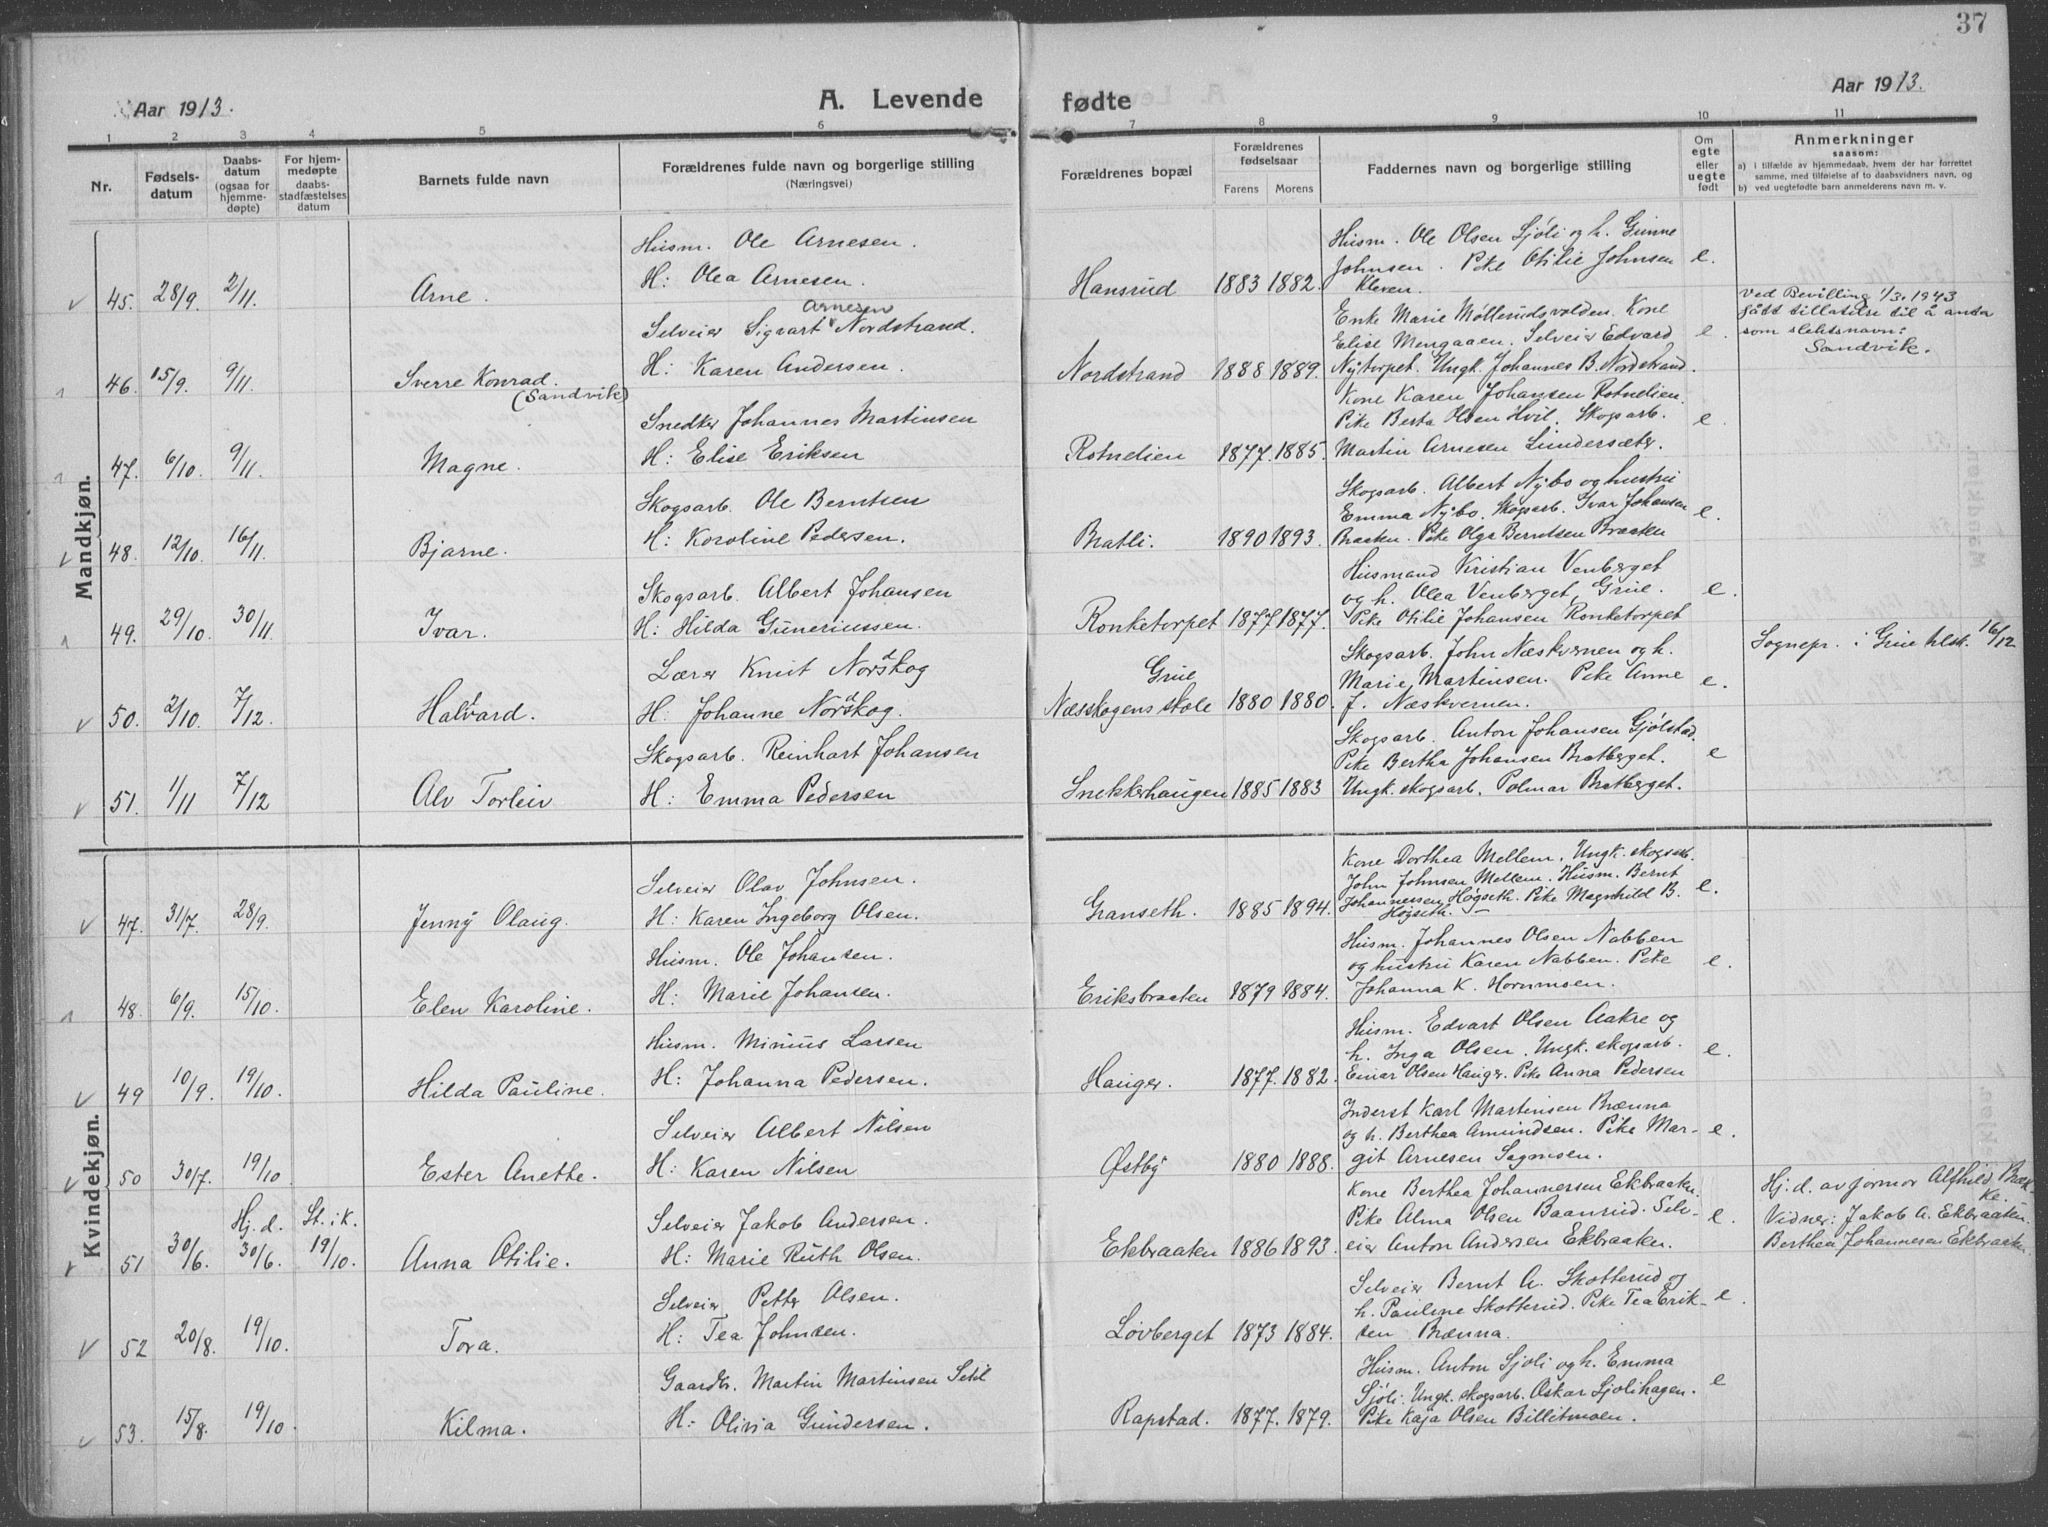 37
Aar 1913.
A. Levende fødte
Aar 1913.
1 2 3 4 5 6 7 8 9 10 11
Nr.
Fødselsdatum
Daabsdatum (ogsaa for hjemmedøpte)
For hjemmedøpte daabsstadfæstelses datum
Barnets fulde navn
Forældrenes fulde navn og borgerlige stilling (Næringsvei)
Forældrenes bopæl
Forældrenes fødselsaar
Farens Morens
Faddernes navn og borgerlige stilling
Om egte eller uegte født
Anmerkninger
saasom:
a) i tilfælde av hjemmedaab, hvem der har forrettet samme, med tilføielse af to daabsvidners navn, og
b) ved uegtefødte barn anmelderens navn m. v.
Mandkjøn.
Husm. Ole Arnesen.
45. 28/9. 2/11. Arne. H: Olea Arnesen. Hansrud 1883 1882.
Husm. Ole Olsen Sjøli og h. Gunne
Johnsen. Pike Otilie Johnsen e.
Kleven.
Arnesen
Selveier Sigvart Nordstrand.
46. 15/9. 9/11. Sverre Konrad. H: Karen Andersen. Nordstrand 1888 1889.
(Sandvik)
Enke Marie Møllerudsvolden. Kone
Elise Mengaaen. Selveier Edvard e.
Nytorpet. Ungk. Johannes B. Nordstrand.
Ved Bevilling 1/3. 1943
fått tillatelse til å anta
som slektsnavn:
Sandvik.
Snedker Johannes Martinsen
47. 6/10. 9/11. Magne. H: Elise Eriksen Rotnelien 1877. 1885.
Kone Karen Johansen Rotnelien.
Pike Berta Olsen Hvil. Skogsarb. e.
Martin Arnesen Lundersæter.
Skogsarb. Ole Berntsen
48. 12/10. 16/11. Bjarne. H: Karoline Pedersen. Bratli. 1890 1893.
Skogsarb. Albert Nybo og hustru
Emma Nybo. Skogsarb. Ivar Johansen e.
Braaten. Pike Olga Berntsen Braaten
Skogsarb. Albert Johansen
49. 29/10. 30/11. Ivar. H: Hilda Guneriussen. Ronketorpet 1877 1877.
Husmand Kristian Venberget
og h. Olea Venberget, Grue. e.
Pike Otilie Johansen Ronketorpet
Lærer Knut Norskog
50. 2/10. 7/12. Halvard. H: Johanne Norskog.
Grue
Næsskogens skole 1880 1880.
Skogsarb. John Næskvernen og h.
Marie Martinsen. Pike Anne e.
J. Næskvernen.
Sognepr. i Grue tilsk. 16/12
Skogsarb. Reinhart Johansen
51. 1/11 7/12 Alv Torleiv H: Emma Pedersen Snekkerhaugen 1885 1883
Skogsarb. Anton Johansen Gjølstad.
Pike Bertha Johansen Bratberget. e
Ungk. skogsarb. Polmar Bratberget.
Kvindekjøn.
Selveier Olav Johnsen.
47. 31/7. 28/9. Jenny Olaug. H: Karen Ingeborg Olsen. Granseth. 1885 1894.
Kone Dorthea Mellem. Ungk. skogsarb.
John Johnsen Mellem. Husm. Bernt e.
Johannessen Høgseth. Pike Magnhild B.
Høgseth.
Husm. Ole Johansen.
48. 6/9. 15/10. Elen Karoline. H: Marie Johansen. Eriksbraaten 1879 1884.
Husm. Johannes Olsen Nabben
og hustru Karen Nabben. Pike e.
Johanna K. Hornmoen.
Husm. Minius Larsen
49 10/9. 19/10. Hilda Pauline. H: Johanna Pedersen. Hauger. 1877. 1882.
Husm. Edvart Olsen Aakre og
h. Inga Olsen. Ungk. skogsarb. e.
Einar Olsen Hauger. Pike Anna Pedersen
Selveier Albert Nilsen
50 30/7. 19/10. Ester Anette. H: Karen Nilsen Østby 1880 1888.
Inderst Karl Martinsen Brænna
og h. Berthea Amundsen. Pike Mar- e.
git Arnesen Sagmoen.
Hj. d. St. i k. Selveier Jakob Andersen.
51 30/6. 30/6. 19/10. Anna Otilie. H: Marie Ruth Olsen. Ekbraaten 1886 1893.
Kone Berthea Johannersen Ekbraaten.
Pike Alma Olsen Baanrud. Selv- e.
eier Anton Andersen Ekbraaten.
Hj. d. av jormor Alfhild Bræk-
ke.
Vidner: Jakob A. Ekbraaten.
Berthea Johannesen Ekbraaten.
Selveier Petter Olsen.
52 20/8. 19/10. Tora. H: Tea Johnsen. Løvberget 1873 1884.
Selveier Bernt A. Skotterud og
h. Pauline Skotterud. Pike Tea Erik- e.
sen Brænna.
Gaardbr. Martin Martinsen Setil
53. 15/8. 19/10. Kilma. H: Olivia Gundersen. Rapstad. 1877. 1879.
Husm. Anton Sjøli og h. Emma
Sjøli. Ungk. skogsarb. Oskar Sjølihagen. e
Pike Kaja Olsen Billitmoen.